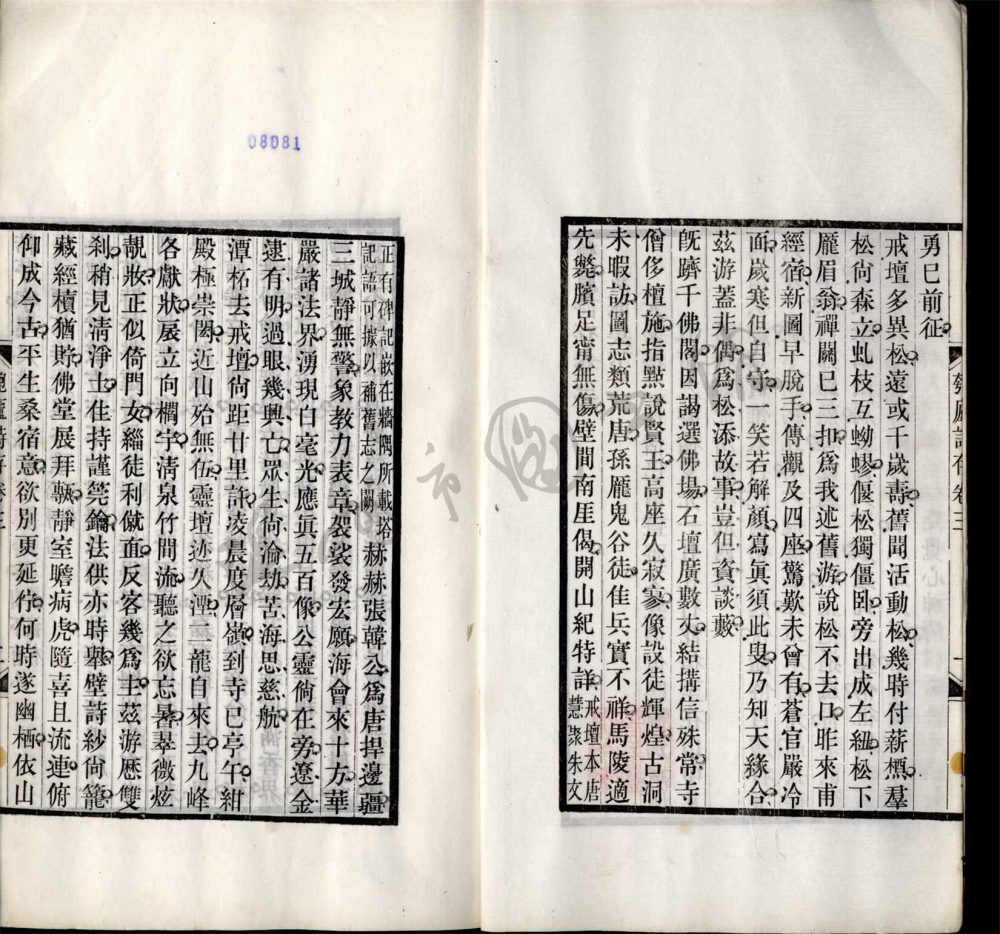 勇巳前征
戒壇多異松遠或千歲壽舊聞活動松幾時付薪槱羣
松尙森立虬枝互蚴蟉偃松獨僵臥旁出成左紐松下
厖眉翁禪關巳三扣爲我述舊游說松不去口昨來甫
經宿新圖早脫手傳觀及四座驚歎未曾有蒼官嚴冷
面歲寒但自守一笑若解顏寫眞須此叟乃知天緣合
茲游蓋非偶爲松添故事豈但資談藪
旣躋千佛閣因謁選佛場石壇廣數丈結搆信殊常寺
僧侈檀施指點說賢王高座久寂寥像設徒輝煌古洞
未暇訪圖志類荒唐孫龐鬼谷徒佳兵實不祥馬陵適
先斃臏足甯無傷壁間南厓偈開山紀特詳戒壇本唐
慧聚朱文
卷三
一
正有碑記嵌在牆隅所載塔
記語可據以補舊志之闕赫赫張韓公爲唐捍邊疆
三城靜無警象教力表章袈裟發宏願海會來十方華
嚴諸法界湧現白毫光應眞五百像公靈倘在旁遼金
逮有明過眼幾興亡眾生尙淪劫苦海思慈航
潭柘去戒壇尙距廿里許凌晨度層嶺到寺巳亭午紺
殿極崇閎近山殆無伍靈壇迹久湮二龍自來去九峰
各獻狀扆立向欄宇清泉竹間流聽之欲忘暑翠微炫
靚妝正似倚門女緇徒利僦面反客幾爲主茲游愿雙
刹稍見清淨土住持謹筦鑰法供亦時舉壁詩紗尙籠
藏經櫝猶貯佛堂展拜甎靜室瞻病虎隨喜且流連俯
仰成今古平生桑宿意欲別更延佇何時遂幽栖依山
08081